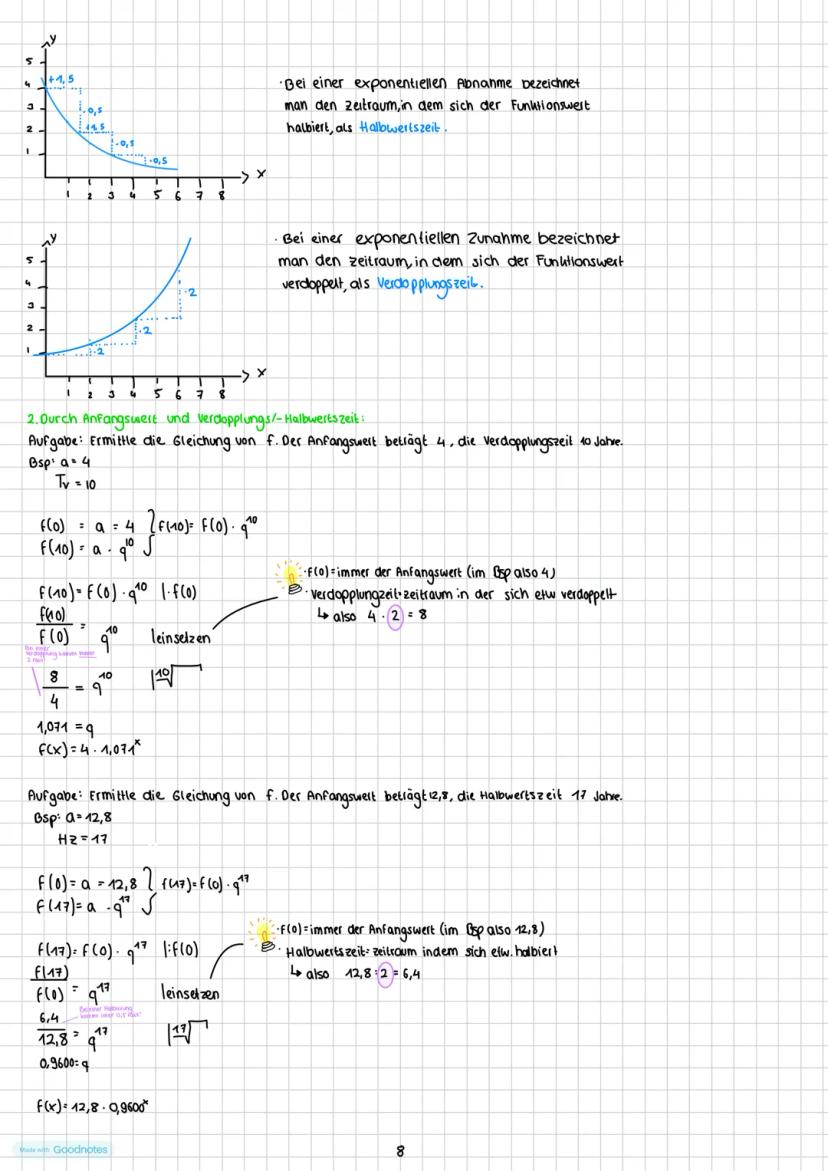 y
5
4
3
2
1
+1,5
·0,5
+1,5
·0,5
·0,5
x
1 2 3 4 5 6 7 8
· Bei einer exponentiellen Abnahme bezeichnet
man den zeitraum, in dem sich der Funktionswert
halbiert, als Halbwertszeit.
y
5
4
3
2
1
·2
·2
·2
x
1 2 3 4 5 6 7 8
· Bei einer exponentiellen Zunahme bezeichnet
man den zeitraum, in dem sich der Funktionswert
verdoppelt, als Verdopplungszeit.
2. Durch Anfangswert und Verdopplungs/-Halbwertszeit:
Aufgabe: Ermittle die Gleichung von f. Der Anfangswert beträgt 4, die Verdopplungszeit 10 Jahre.
Bsp: a = 4
Tv = 10
f(0) = a = 4 } f(10) = f(0) · q^10
f(10) = a · q^10
f(10) = f(0) · q^10 |: f(0)
f(10)/f(0) = q^10 |einsetzen
· f(0) = immer der Anfangswert (im Bsp also 4)
· Verdopplungzeit = zeitraum in der sich etw verdoppelt
↳ also 4 · 2 = 8
Bei einer
Verdopplung kommt immer
2 raus
8/4 = q^10 | 10√
1,071 = q
f(x) = 4 · 1,071^x
Aufgabe: Ermittle die Gleichung von f. Der Anfangswert beträgt 12,8, die Halbwertszeit 17 Jahre.
Bsp: a = 12,8
Hz = 17
f(0) = a = 12,8 } f(17) = f(0) · q^17
f(17) = a · q^17
f(17) = f(0) · q^17 |: f(0)
f(17)/f(0) = q^17 |einsetzen
· f(0) = immer der Anfangswert (im Bsp also 12,8)
· Halbwertszeit = zeitraum indem sich etw. halbiert
↳ also 12,8 : 2 = 6,4
Bei einer Halbierung
6,4/12,8 = q^17 | 17√
0,9600 = q
f(x) = 12,8 · 0,9600^x
Made with Goodnotes
8